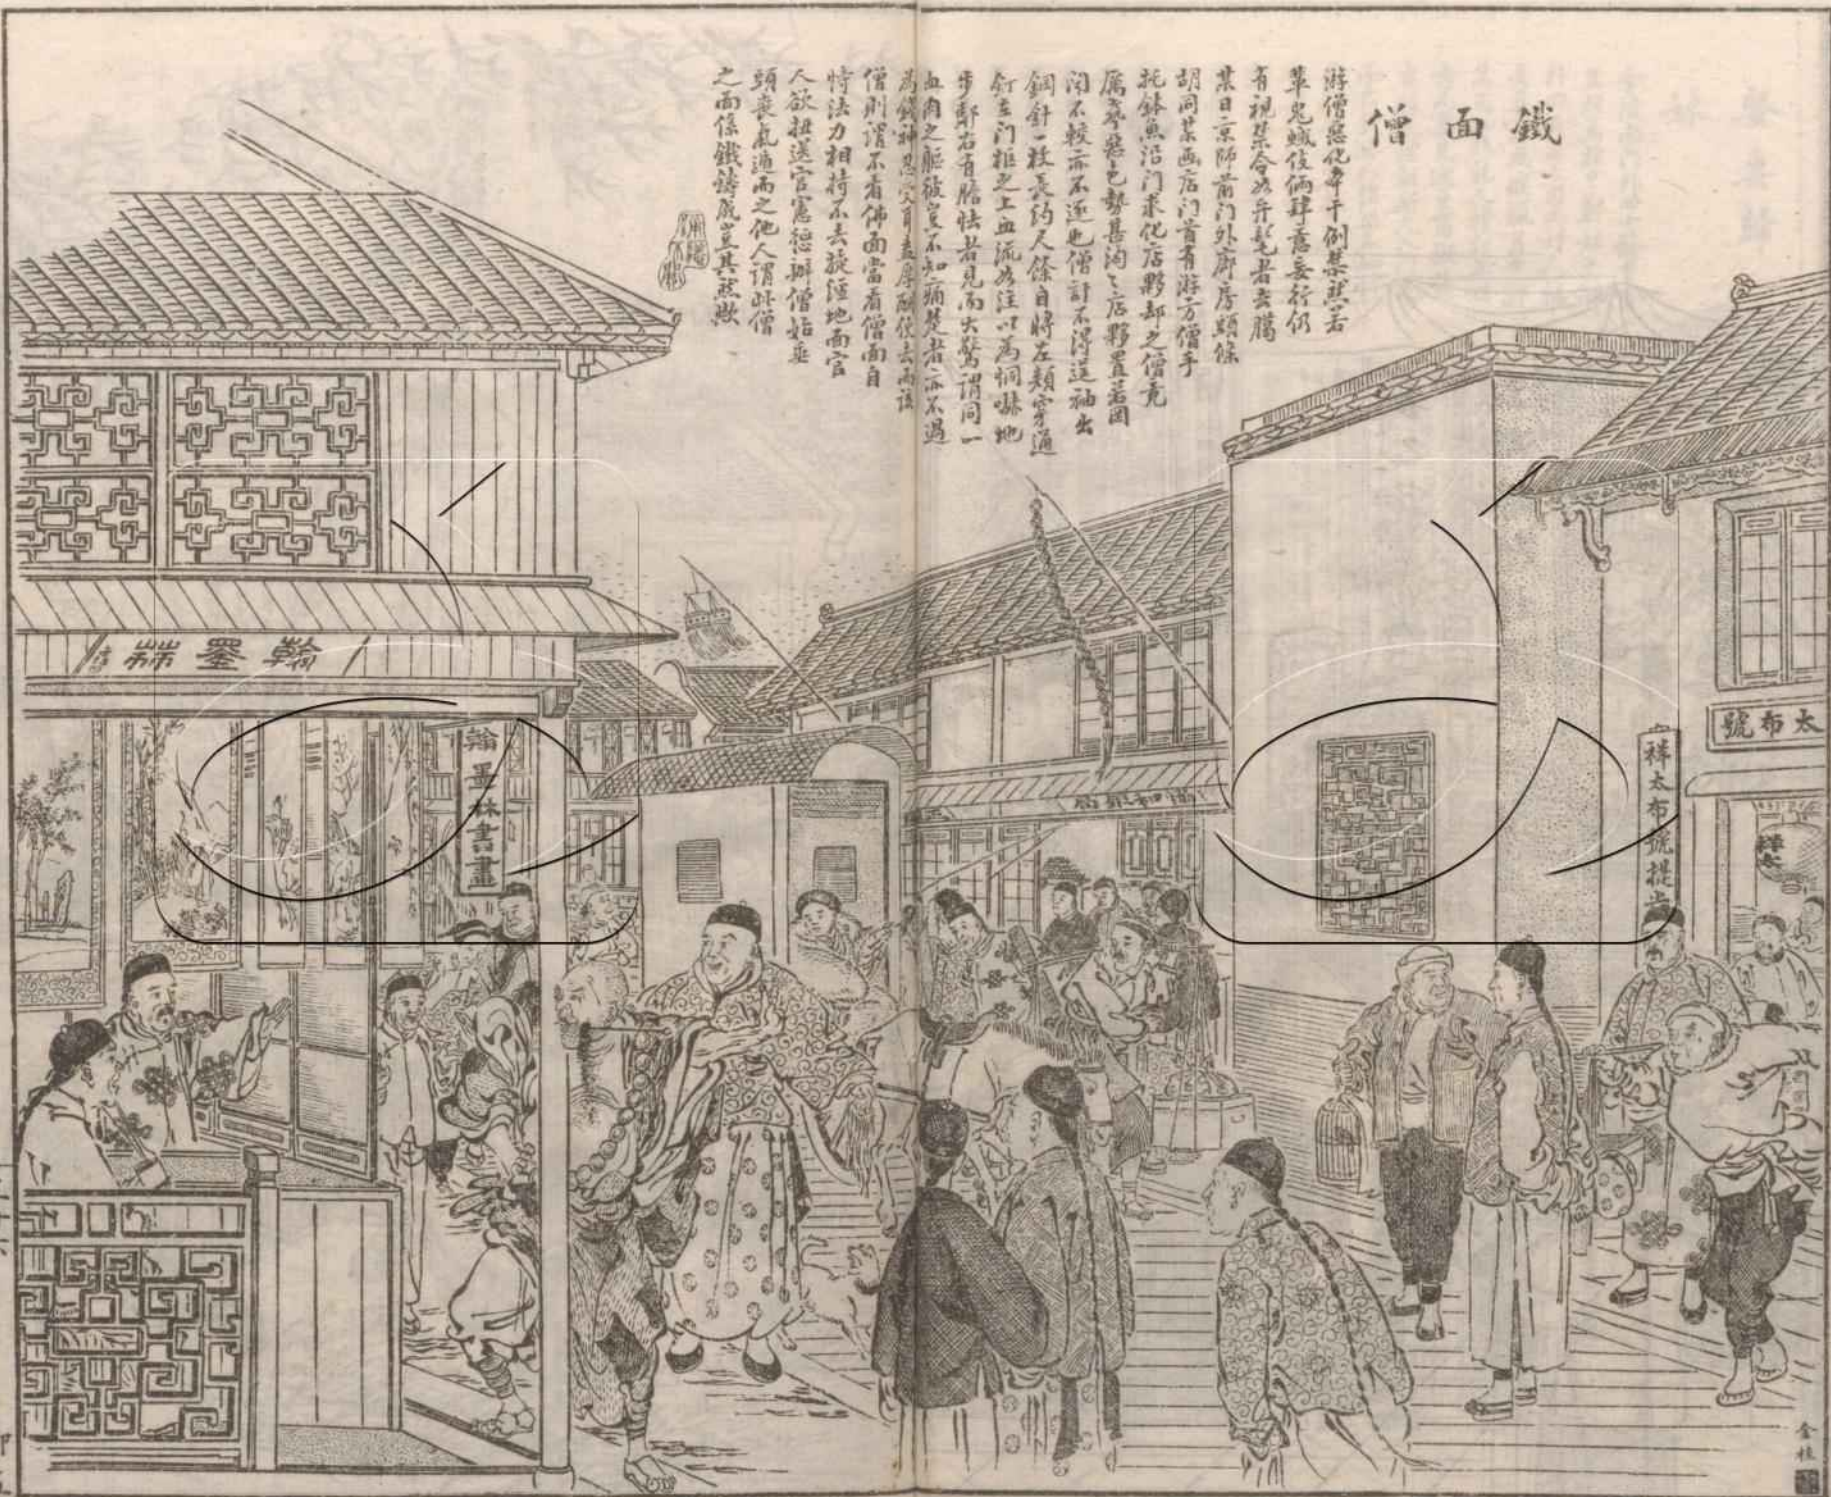 鐵面僧
游僧惡化奉干例禁然若
輩鬼蜮伎倆肆意妄行仍
有視禁令如弁髦者去臘
某日京師前门外廊房頭條
胡同某画店门首有游方僧手
托鉢魚沿门求化店夥却之僧竟
厲聲惡色勢甚洶〻店夥置若罔
聞不較亦不逐也僧計不得逞袖出
鋼針一枚長約尺餘自將左頰穿通
釘在门框之上血流如注以為恫嚇地
步鄰右有膽怯者見而大驚謂同一
血肉之軀彼豈不知痛楚者亦不過
為錢神忍受耳盍厚酬使去而該
僧則謂不看佛面當看僧面自
恃法力相持不去旋經地面官
人欲扭送官憲懲辦僧始垂
頭喪氣遁而之他人謂此僧
之面係鐵鑄成豈其然歟
翰墨林
翰墨林書畫
太布號
祥太布號提庄
祥太
金桂